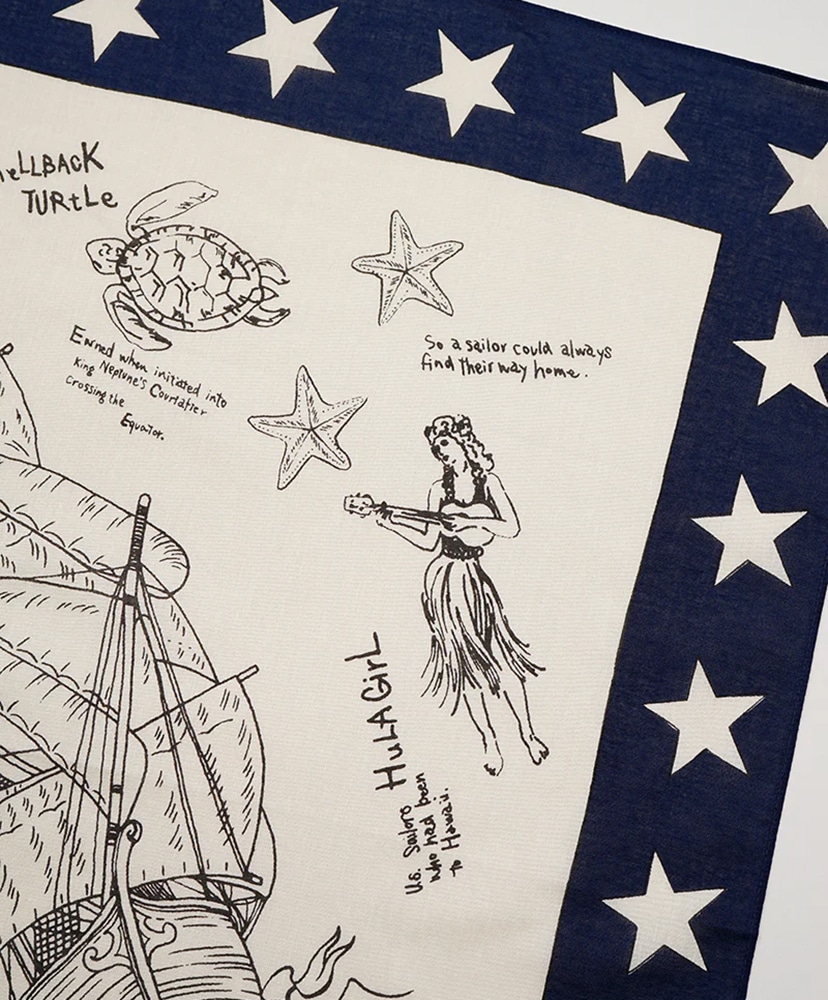 hELLBACK
TURtLE
Earned when initiated into
King Neptune's Court after
Crossing the
Equator.
So a sailor could always
find their way home.
HuLA GirL
U.s. Sailors
who had been
to Hawaii.